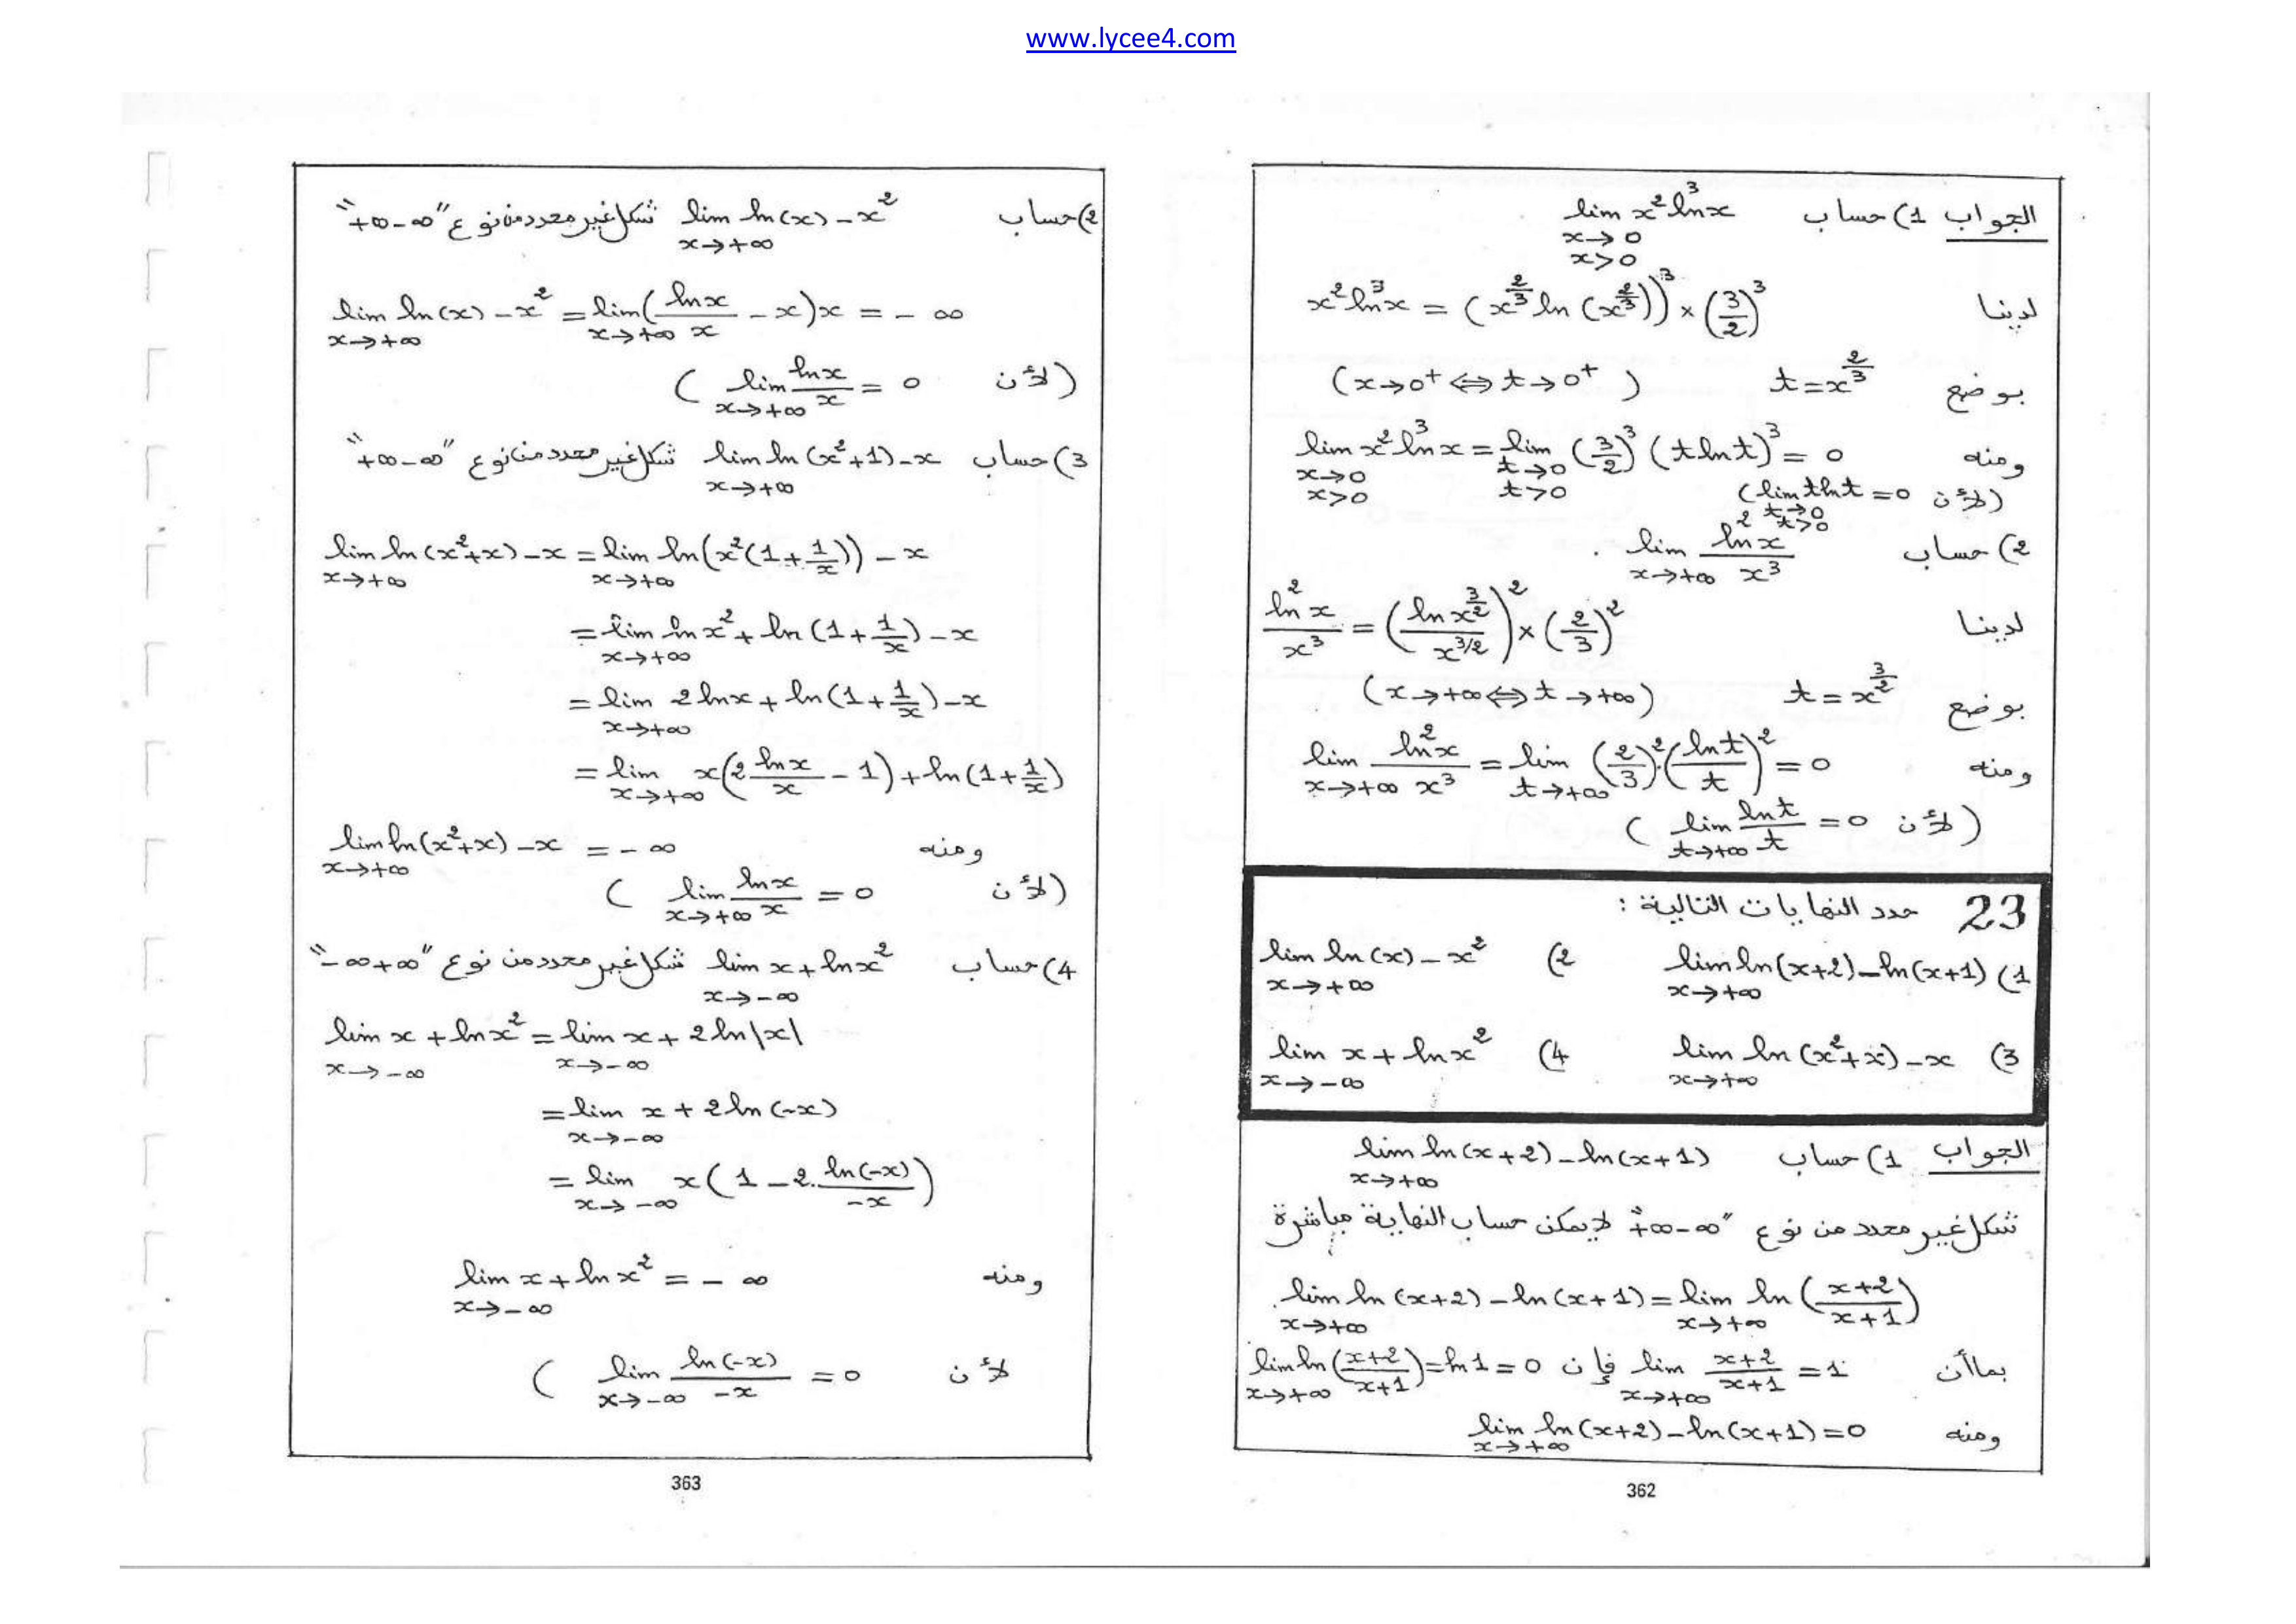 www.lycee4.com
الجواب 1) حساب lim x² ln³x
x→0
x>0
لدينا x² ln³x = (x^(2/3) ln (x^(2/3)))³ × (3/2)³
بوضع t = x^(2/3) (x→0⁺ ⇔ t→0⁺)
ومنه lim x² ln³x = lim (3/2)³ (t ln t)³ = 0
x→0 t→0
x>0 t>0
(لأن lim t ln t = 0)
t→0
t>0
2) حساب lim ln²x / x³
x→+∞
لدينا ln²x / x³ = (ln x^(3/2) / x^(3/2))² × (2/3)²
بوضع t = x^(3/2) (x→+∞ ⇔ t→+∞)
ومنه lim ln²x / x³ = lim (2/3)² · (ln t / t)² = 0
x→+∞ t→+∞
(لأن lim ln t / t = 0)
t→+∞
23 حدد النهايات التالية :
1) lim ln(x+2) – ln(x+1) 2) lim ln(x) – x²
x→+∞ x→+∞
3) lim ln(x²+x) – x 4) lim x + ln x²
x→+∞ x→–∞
الجواب 1) حساب lim ln(x+2) – ln(x+1)
x→+∞
شكل غير محدد من نوع "+∞–∞" لا يمكن حساب النهاية مباشرة
lim ln(x+2) – ln(x+1) = lim ln((x+2)/(x+1))
x→+∞ x→+∞
بما أن lim (x+2)/(x+1) = 1 فإن lim ln((x+2)/(x+1)) = ln 1 = 0
x→+∞ x→+∞
ومنه lim ln(x+2) – ln(x+1) = 0
x→+∞
362
2) حساب lim ln(x) – x² شكل غير محدد من نوع "+∞–∞"
x→+∞
lim ln(x) – x² = lim (ln x / x – x)x = – ∞
x→+∞ x→+∞
(لأن lim ln x / x = 0)
x→+∞
3) حساب lim ln(x²+1) – x شكل غير محدد من نوع "+∞–∞"
x→+∞
lim ln(x²+x) – x = lim ln(x²(1+1/x)) – x
x→+∞ x→+∞
= lim ln x² + ln(1+1/x) – x
x→+∞
= lim 2 ln x + ln(1+1/x) – x
x→+∞
= lim x(2 ln x / x – 1) + ln(1+1/x)
x→+∞
ومنه lim ln(x²+x) – x = – ∞
x→+∞
(لأن lim ln x / x = 0)
x→+∞
4) حساب lim x + ln x² شكل غير محدد من نوع "–∞+∞"
x→–∞
lim x + ln x² = lim x + 2 ln|x|
x→–∞ x→–∞
= lim x + 2 ln(–x)
x→–∞
= lim x(1 – 2. ln(–x) / –x)
x→–∞
ومنه lim x + ln x² = – ∞
x→–∞
لأن lim ln(–x) / –x = 0 )
x→–∞
363